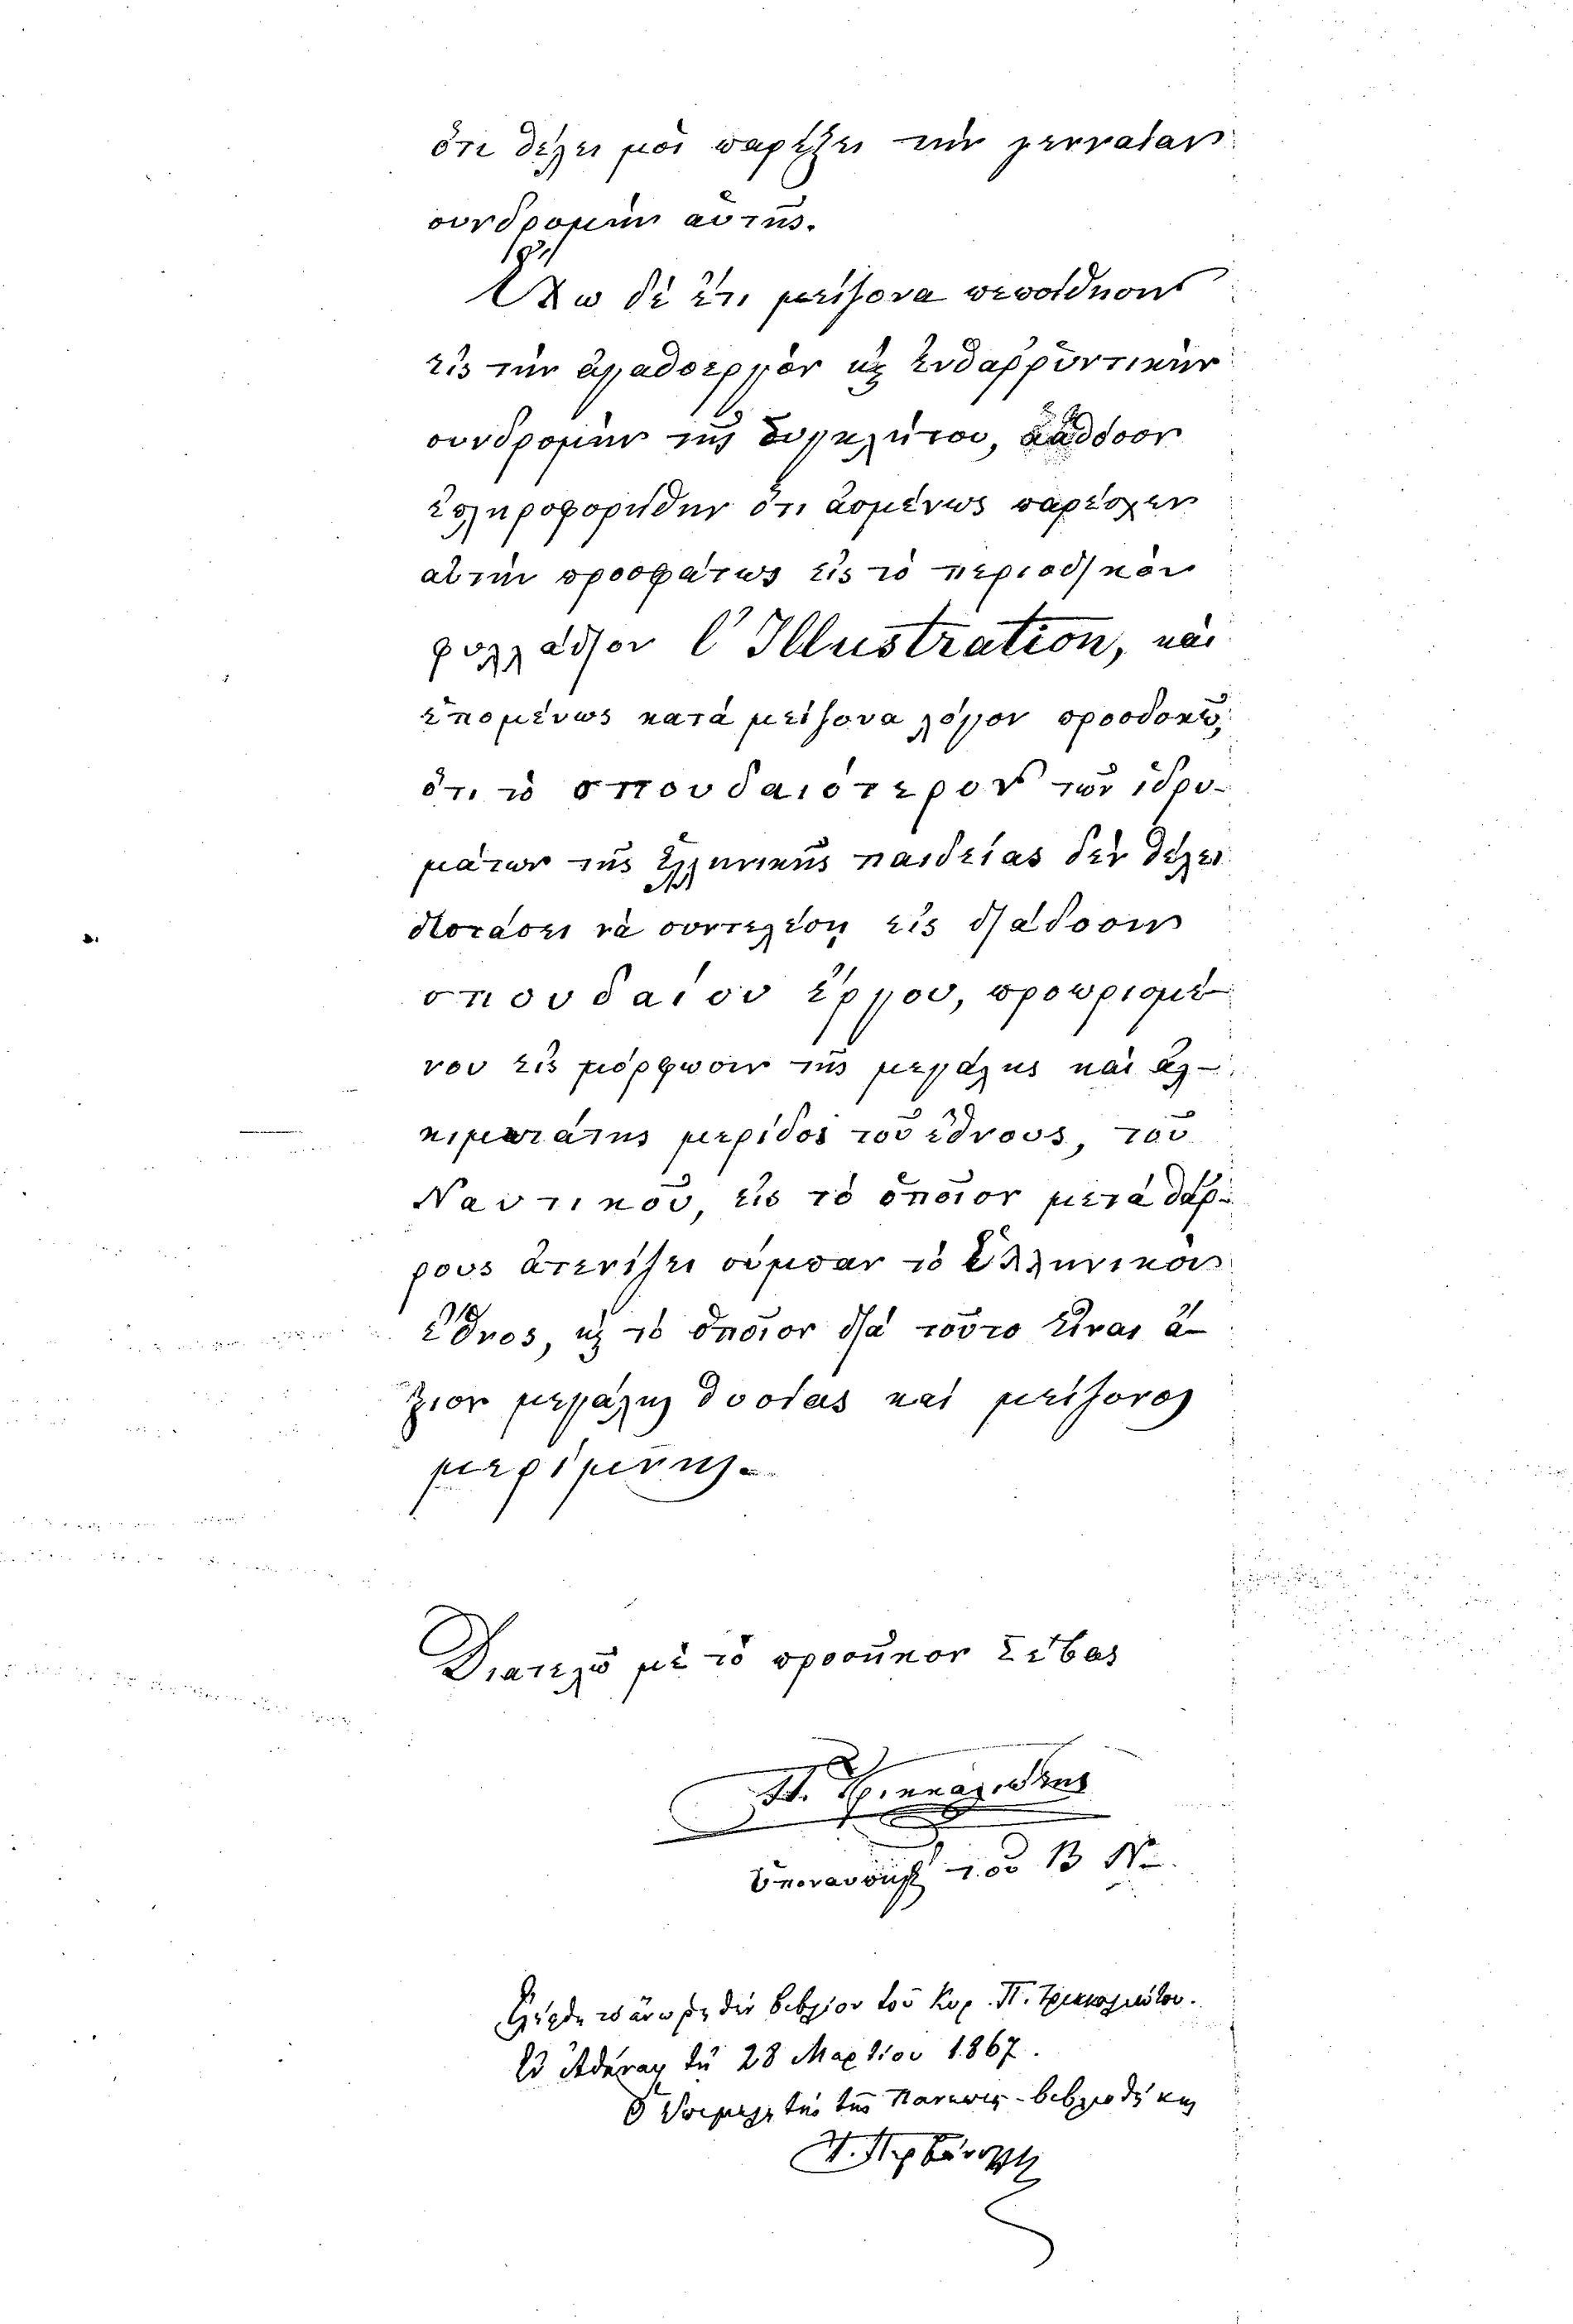 ὅτι θέλει μοὶ παρέξει τὴν γενναίαν
συνδρομὴν αὐτῆς.
Ἔχω δὲ ἔτι μείζονα πεποίθησιν
εἰς τὴν ἀγαθοεργὸν κ ἐνθαῤῥυντικὴν
συνδρομὴν τῆς Συγκλήτου, καθόσον
ἐπληροφορήθην ὅτι ἀσμένως παρέσχεν
αὐτὴν προσφάτως εἰς τὸ περιοδικὸν
φυλλάδιον l'Illustration, καὶ
ἑπομένως κατὰ μείζονα λόγον προσδοκῶ,
ὅτι τὸ σπουδαιότερον τῶν ἱδρυ-
μάτων τῆς Ἑλληνικῆς παιδείας δὲν θέλει
διστάσει νὰ συντελέσῃ εἰς διάδοσιν
σπουδαίου ἔργου, προωρισμέ-
νου εἰς μόρφωσιν τῆς μεγάλης καὶ ἀλ-
κιμωτάτης μερίδος τοῦ ἔθνους, τοῦ
Ναυτικοῦ, εἰς τὸ ὁποῖον μετὰ θάρ-
ρους ἀτενίζει σύμπαν τὸ Ἑλληνικὸν
ἔθνος, κ τὸ ὁποῖον διὰ τοῦτο εἶναι ἄ-
ξιον μεγάλης θυσίας καὶ μείζονος
μερίμνης.
Διατελῶ μὲ τὸ προσῆκον Σέβας
Π.
τοῦ Β Ν
Ἐλήφθη τὸ ἄνω βιβλίον τοῦ Κυρ. Π.
Ἐν Ἀθήναις τῇ 28 Μαρτίου 1867.
Ὁ τῆς